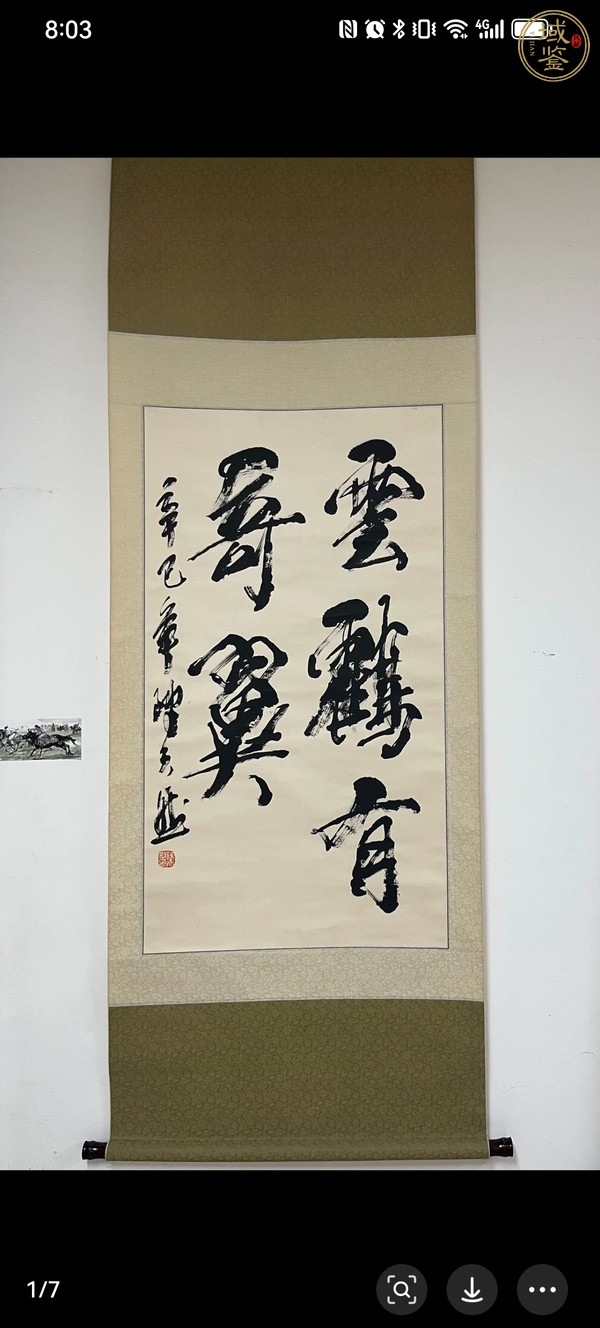 8:03
4G
域鉴
雲鶴有
奇翼
辛巳年
1/7